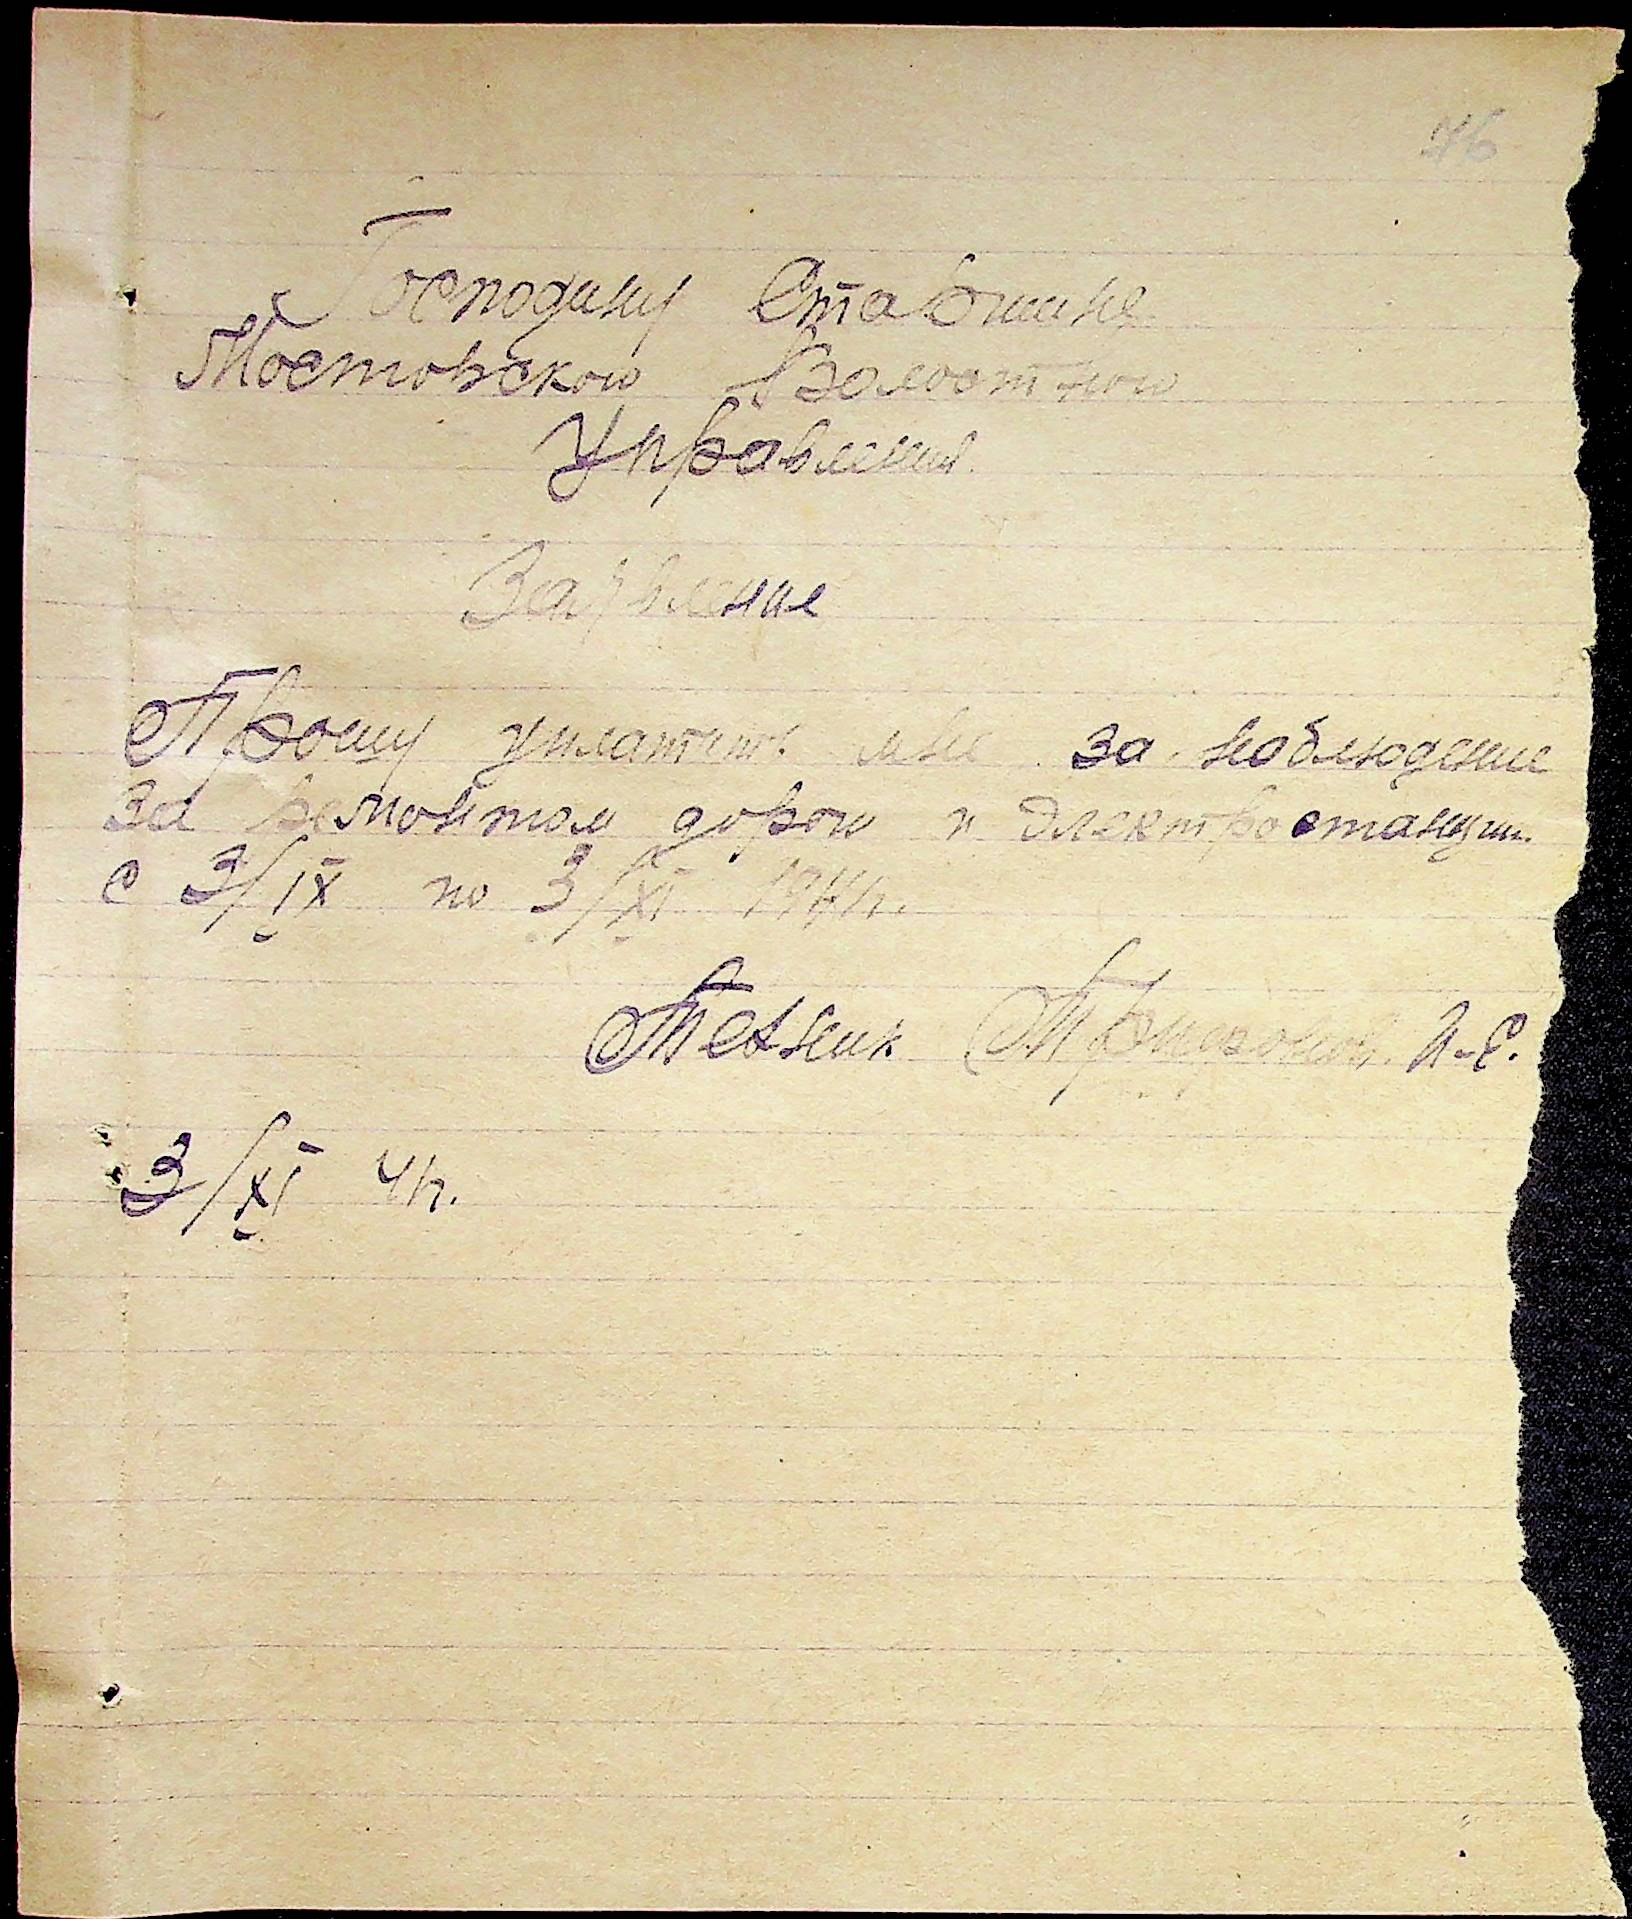 76
Господину Старшине
Мостовского Волостного
Управления.
Заявление
Прошу уплатить мне за наблюдение
за ремонтом дорог и электростанции
с 3/IX по 3/XI 1941г.
Техник И-Е.
3/XI 41г.